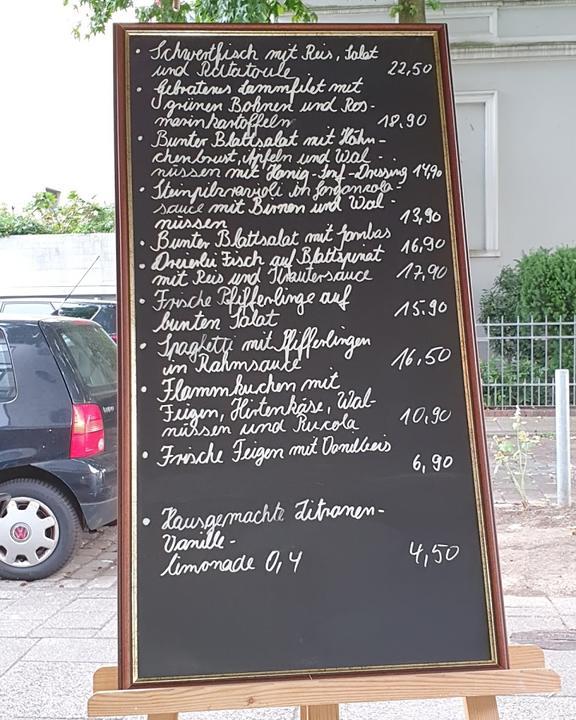 • Schwertfisch mit Reis, Salat
und Ratatouie 22,50
• Gebratenes Lammfilet mit
grünen Bohnen und Ros-
marinkartoffeln 18.90
• Bunter Blattsalat mit Hähn-
chenbrust, Äpfeln und Wal-
nüssen mit Honig-Senf-Dressing 14,90
• Steinpilzravioli in Gorgonzola-
sauce mit Birnen und Wal-
nüssen 13,90
• Bunter Blattsalat mit Gambas 16,90
• Dreierlei Fisch auf Blattspinat
mit Reis und Kräutersauce 17,90
• Frische Pfifferlinge auf
bunten Salat 15.90
• Spaghetti mit Pfifferlingen
in Rahmsauce 16,50
• Flammkuchen mit
Feigen, Hirtenkäse, Wal-
nüssen und Rucola 10,90
• Frische Feigen mit Vanilleeis
6,90
• Hausgemachte Zitronen-
Vanille-
limonade 0,4 4,50